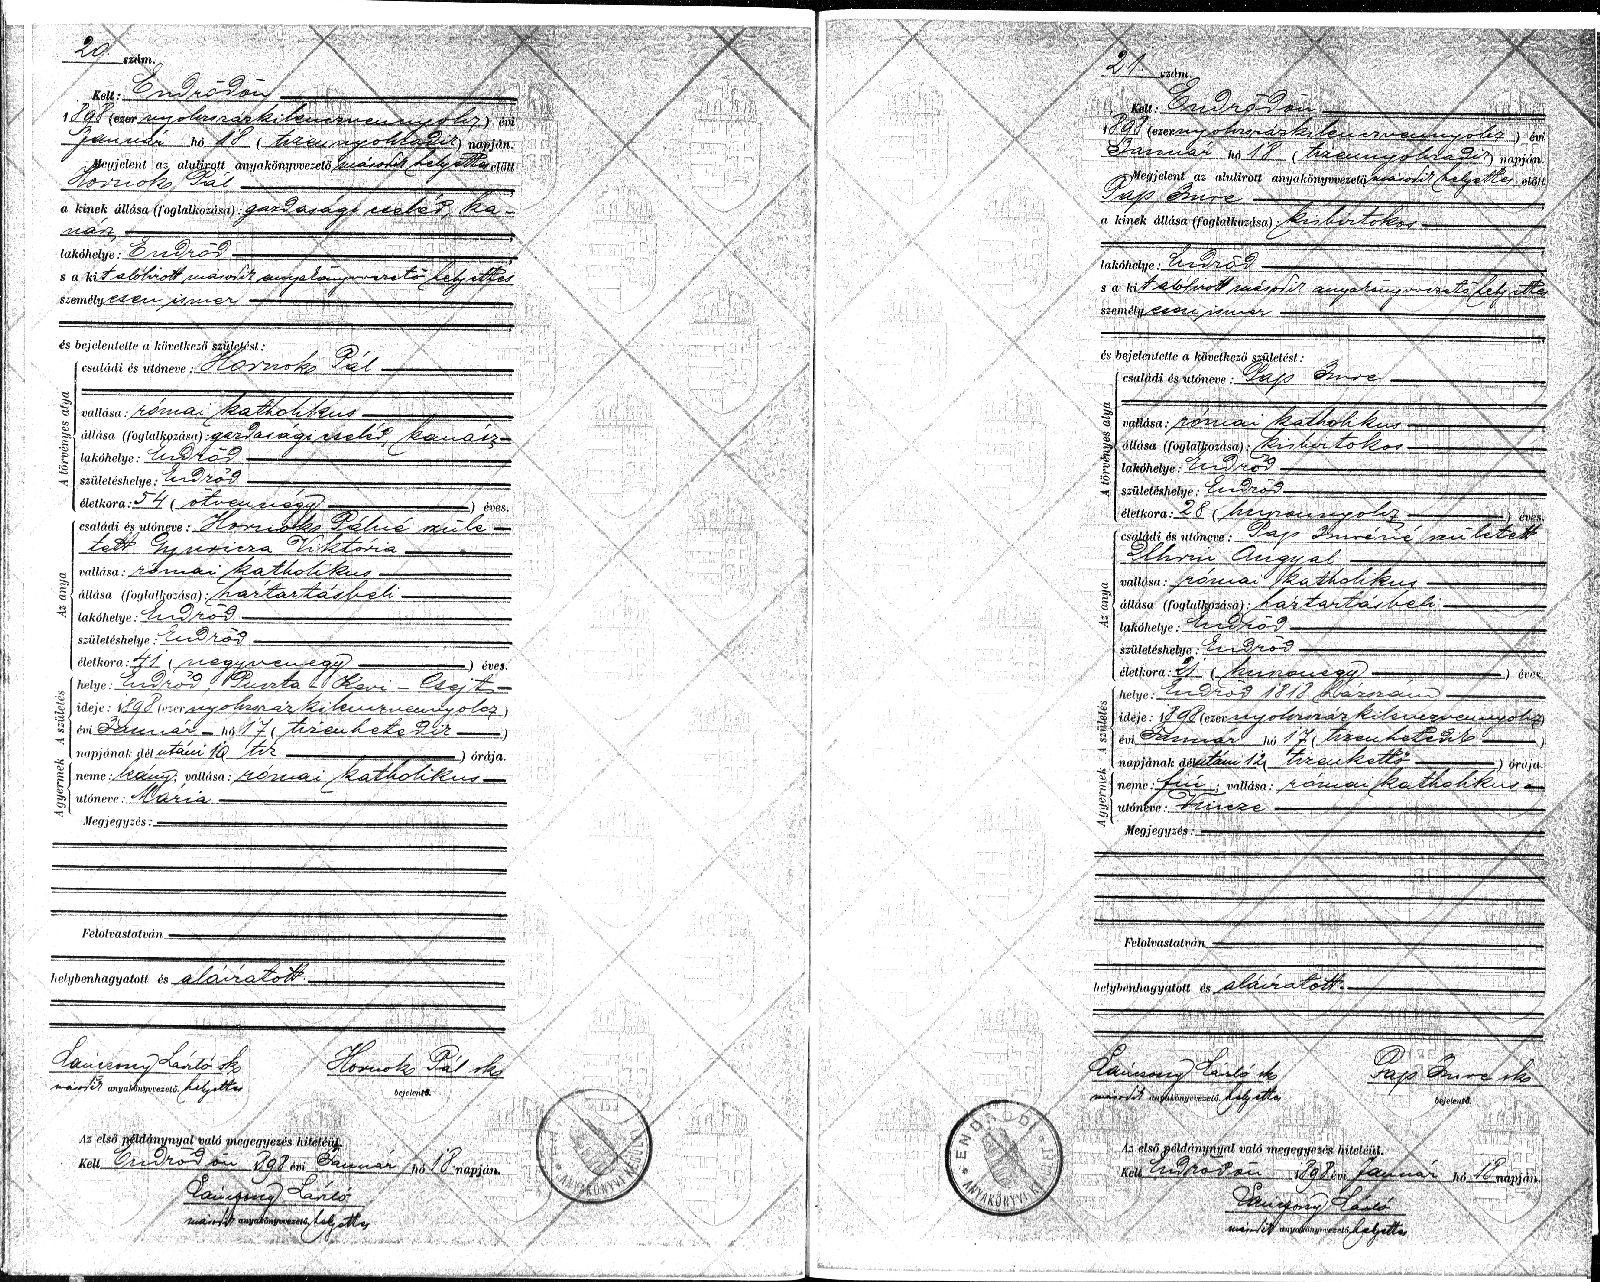 20 szám.
Kelt: Endrődön
1898 (ezer nyolcszázkilencvennyolcz) évi
Január hó 18 (tizennyolczadik) napján.
Megjelent az alulirott anyakönyvvezető második helyettes előtt
Hornok Pál
a kinek állása (foglalkozása): gazdasági cseléd, ka-
nász,
lakóhelye: Endrőd
s a kit alólirott második anyakönyvvezető helyettes
személyesen ismer
és bejelentette a következő születést:
A törvényes atya
családi és utóneve: Hornok Pál
vallása: római katholikus
állása (foglalkozása): gazdasági cseléd, kanász
lakóhelye: Endrőd
születéshelye: Endrőd
életkora: 54 (ötvennégy) éves.
Az anya
családi és utóneve: Hornok Pálné szüle-
tett Viktória
vallása: római katholikus
állása (foglalkozása): háztartásbeli
lakóhelye: Endrőd
születéshelye: Endrőd
életkora: 41 (negyvenegy) éves.
A születés
helye: Endrőd, Puszta - Csejt
ideje: 1898 (ezer nyolcszázkilencvennyolcz)
évi Január hó 17 (tizenhetedik)
napjának délutáni 10 tiz órája.
A gyermek
neme: leány; vallása: római katholikus
utóneve: Mária
Megjegyzés:
Felolvastatván
helybenhagyatott és aláiratott.
László sk Hornok Pál sk
második anyakönyvvezető. helyettes bejelentő.
Az első példánynyal való megegyezés hiteléül.
Kelt Endrődön 1898 évi Január hó 18 napján.
László
második anyakönyvvezető. helyettes
ANYAKÖNYVI KERÜLET
21 szám.
Kelt: Endrődön
1898 (ezer nyolcszázkilencvennyolcz) évi
Január hó 18 (tizennyolczadik) napján.
Megjelent az alulirott anyakönyvvezető második helyettes előtt
Pap Imre
a kinek állása (foglalkozása): kisbirtokos
lakóhelye: Endrőd
s a kit alólirott második anyakönyvvezető helyettes
személyesen ismer
és bejelentette a következő születést:
A törvényes atya
családi és utóneve: Pap Imre
vallása: római katholikus
állása (foglalkozása): kisbirtokos
lakóhelye: Endrőd
születéshelye: Endrőd
életkora: 28 (huszonnyolcz) éves.
Az anya
családi és utóneve: Pap Imréné született
Angyal
vallása: római katholikus
állása (foglalkozása): háztartásbeli
lakóhelye: Endrőd
születéshelye: Endrőd
életkora: 21 (huszonegy) éves
A születés
helye: Endrőd 1818 házszám
ideje: 1898 (ezer nyolcszázkilencvennyolcz)
évi Január hó 17 (tizenhetedik)
napjának délutáni 12 (tizenkettő) órája
A gyermek
neme: fiú; vallása: római katholikus
utóneve: Vincze
Megjegyzés:
Felolvastatván
helybenhagyatott és aláiratott.
László sk Pap Imre sk
második anyakönyvvezető. helyettes bejelentő.
Az első példánynyal való megegyezés hiteléül.
Kelt Endrődön 1898 évi Január hó 18 napján.
László
második anyakönyvvezető. helyettes
ENDRŐDI ANYAKÖNYVI